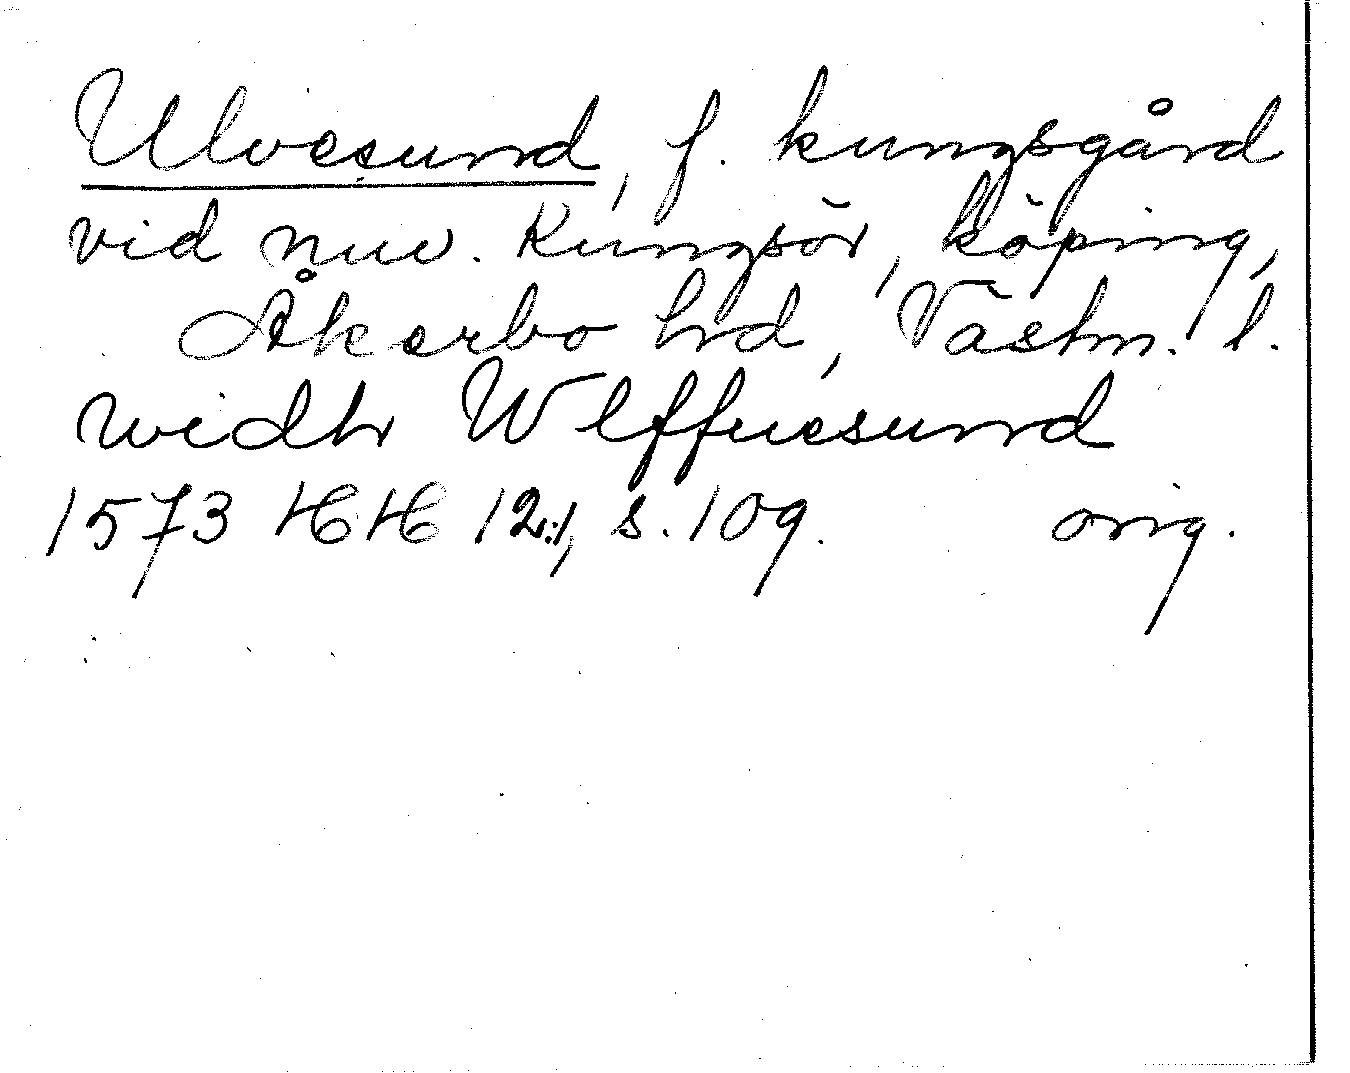 Ulvesund, f. kungsgård
vid nuv. Kungsör, köping,
Åkerbo hd, Västm. l.
widh Wlffuesund
1573 HH 12:1, s. 109. orig.